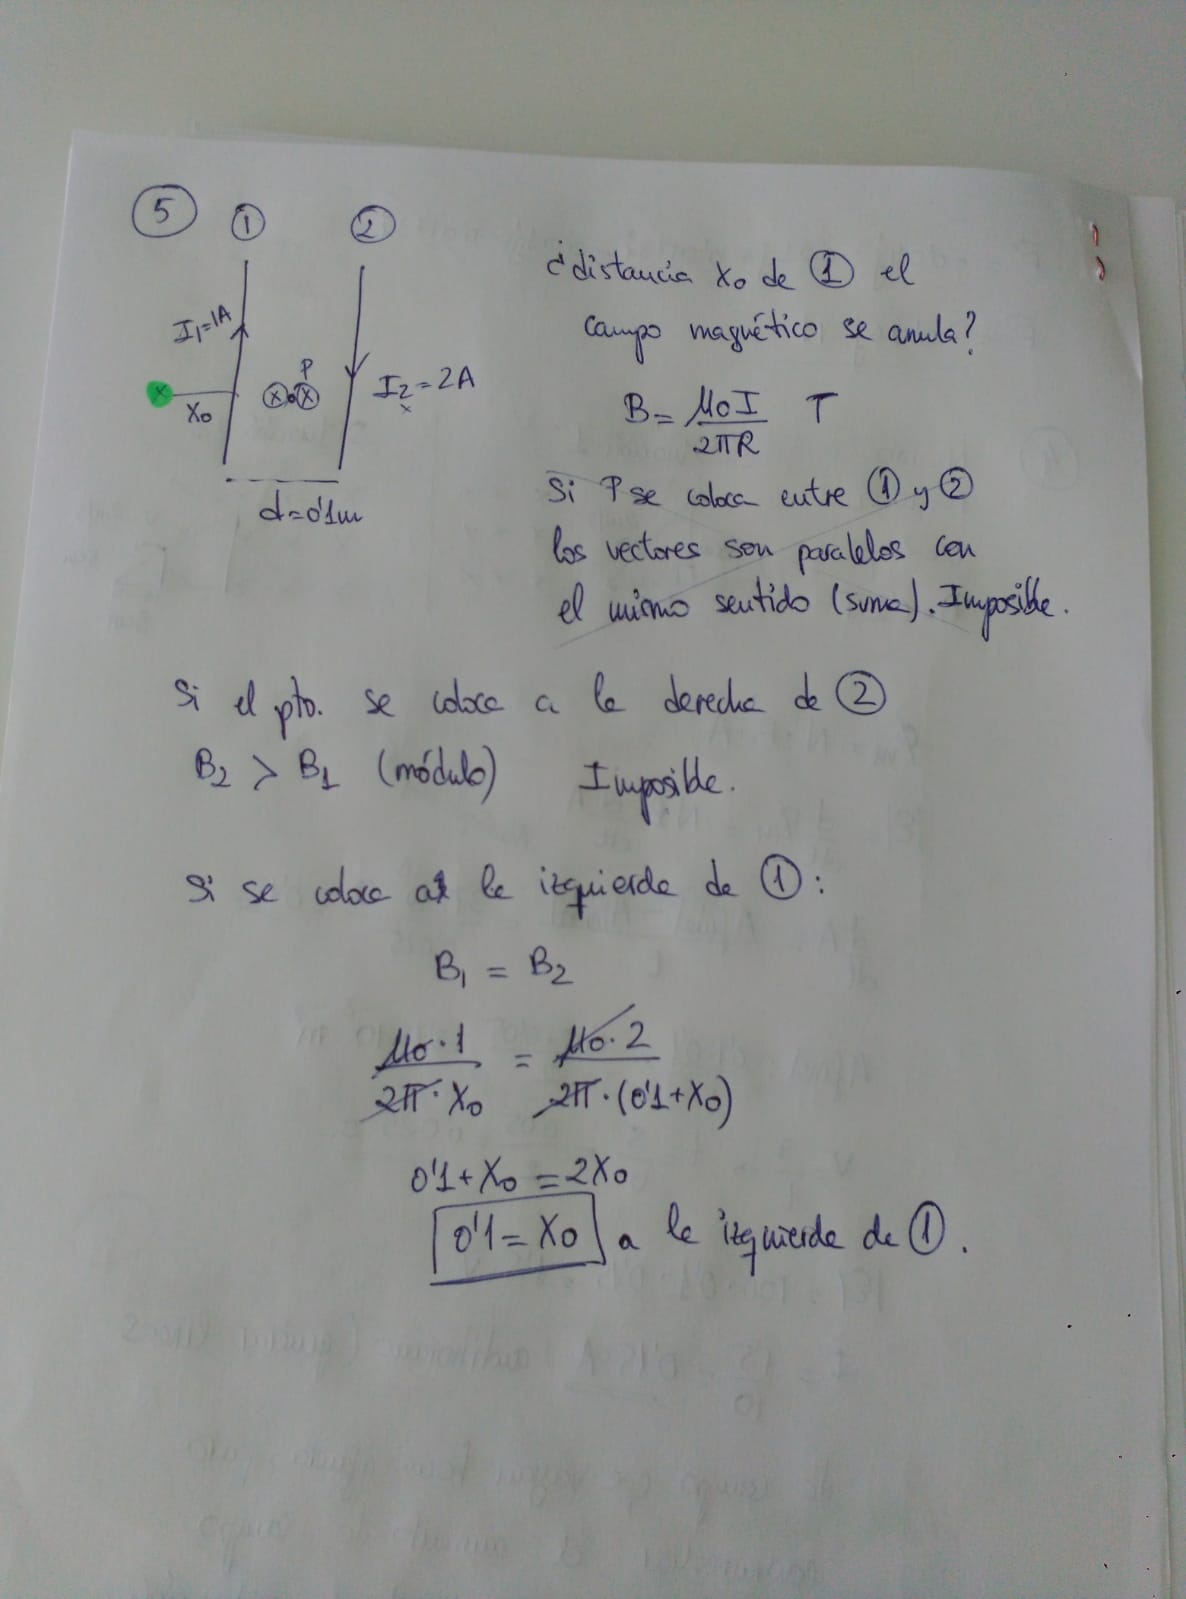 5
1
2
¿distancia x₀ de ① el
campo magnético se anula?
I₁=1A
P
I₂=2A
x
x₀
B = μ₀I / 2πR T
d=0'1m
Si P se coloca entre ① y ②
los vectores son paralelos con
el mismo sentido (suma). Imposible.
Si el pto. se coloca a la derecha de ②
B₂ > B₁ (módulo) Imposible.
Si se coloca a la izquierda de ①:
B₁ = B₂
μ₀·1 / 2π·x₀ = μ₀·2 / 2π·(0'1+x₀)
0'1+x₀ = 2x₀
0'1=x₀ a la izquierda de ①.